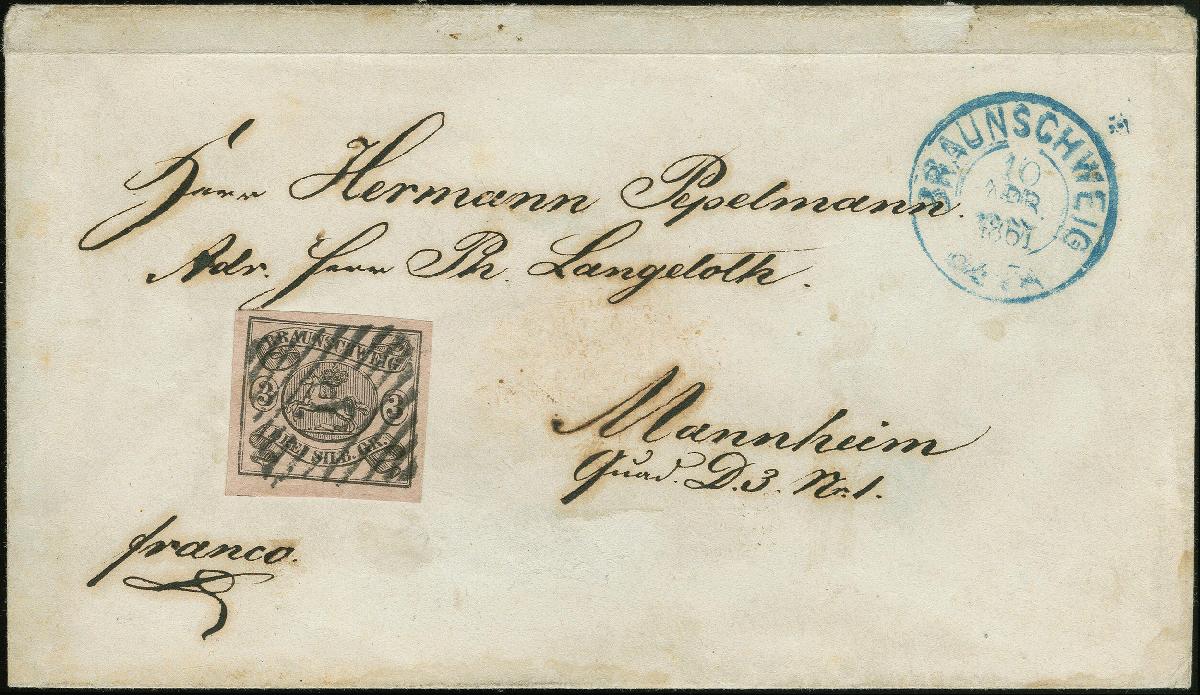 Herr Hermann Pepelmann.
Adr. Herr Ph. Langeloth.
BRAUNSCHWEIG
10
APR.
1861
BRAUNSCHWEIG
3 3
DREI SILB. GR.
Mannheim
Quad. D.3. Nr.1.
franco.